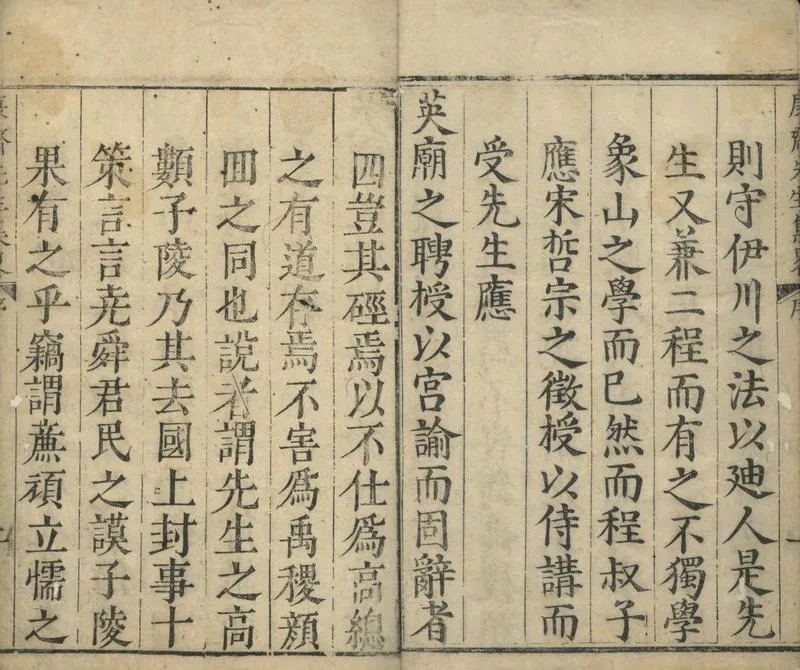 則守伊川之法以廸人是先
生又兼二程而有之不獨學
象山之學而已然而程叔子
應宋哲宗之徵授以侍講而
受先生應
英廟之聘授以宮諭而固辭者
四豈其硜焉以不仕爲高總
之有道存焉不害爲禹稷顔
囬之同也說者謂先生之高
類子陵乃其去國上封事十
策言言尭舜君民之謨子陵
果有之乎竊謂薕頑立懦之